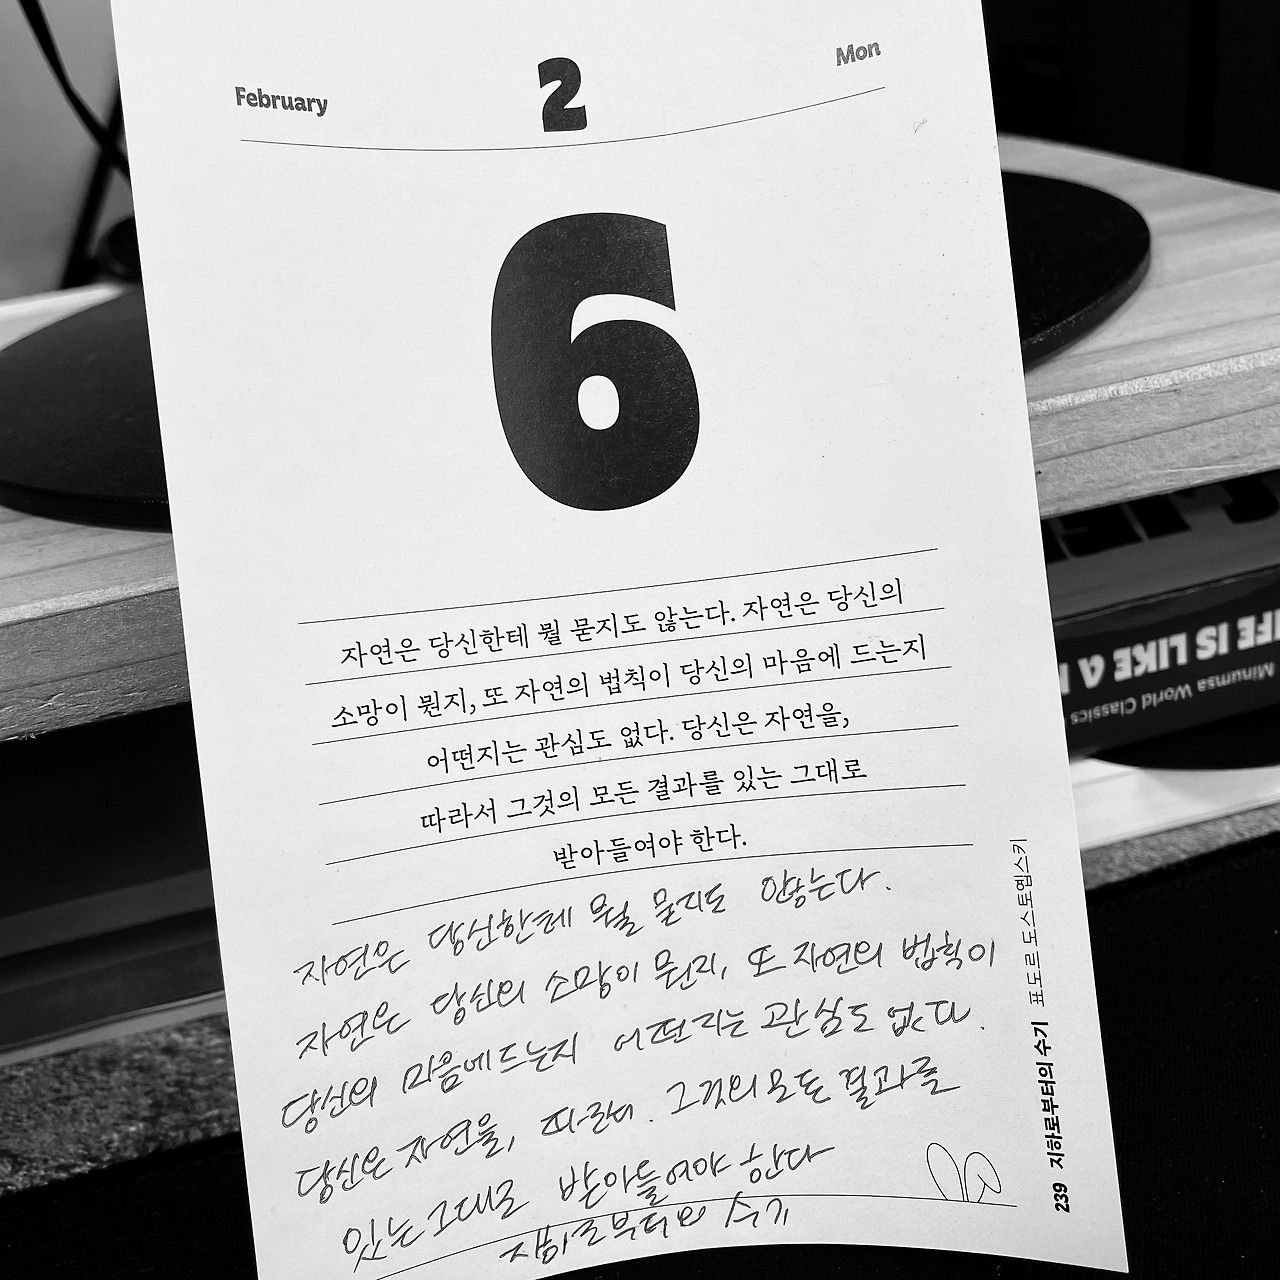 February
2
Mon
6
자연은 당신한테 뭘 묻지도 않는다. 자연은 당신의
소망이 뭔지, 또 자연의 법칙이 당신의 마음에 드는지
어떤지는 관심도 없다. 당신은 자연을,
따라서 그것의 모든 결과를 있는 그대로
받아들여야 한다.
자연은 당신한테 뭘 묻지도 않는다.
자연은 당신의 소망이 뭔지, 또 자연의 법칙이
당신의 마음에 드는지 어떤지는 관심도 없다.
당신은 자연을, 따라서. 그것의 모든 결과를
있는 그대로 받아들여야 한다
지하로부터의 수기
239 지하로부터의 수기 표도르 도스토옙스키
IFE IS LIKE A
Minumsa World Classics